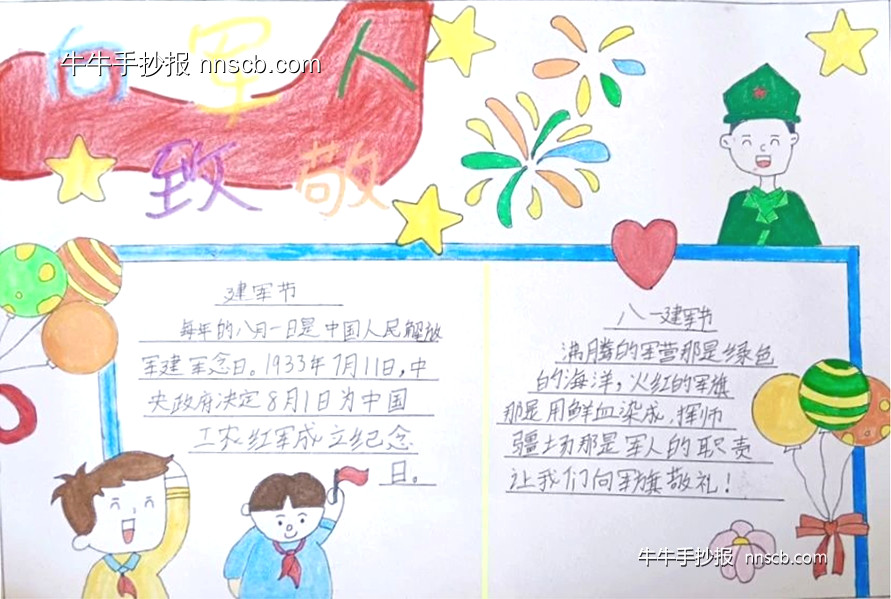 向军人
牛牛手抄报 nnscb.com
致敬
建军节
每年的八月一日是中国人民解放
军建军念日。1933年7月11日,中
央政府决定8月1日为中国
工农红军成立纪念
日。
八一建军节
沸腾的军营那是绿色
的海洋,火红的军旗
那是用鲜血染成,挥师
疆场那是军人的职责
让我们向军旗敬礼!
牛牛手抄报 nnscb.com